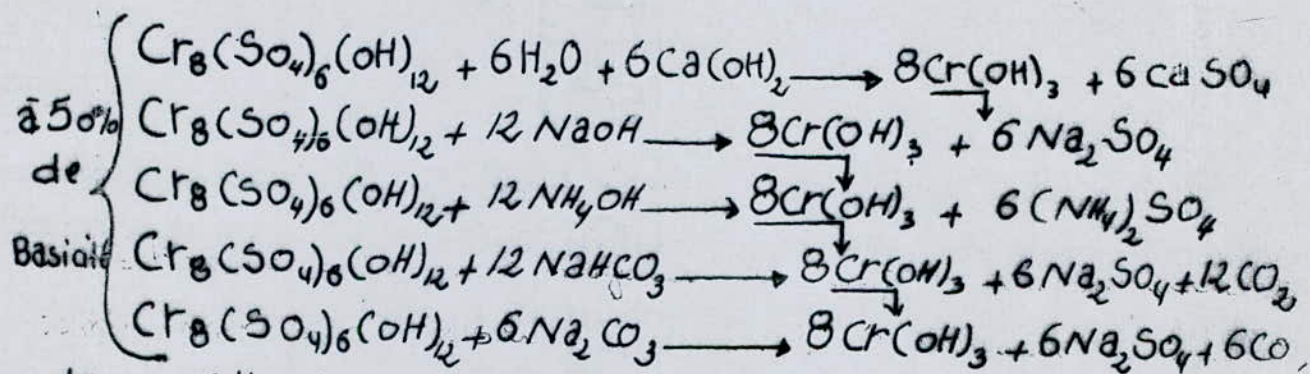 Cr₈(SO₄)₆(OH)₁₂ + 6H₂O + 6Ca(OH)₂ → 8Cr(OH)₃ + 6CaSO₄
à 50% Cr₈(SO₄)₆(OH)₁₂ + 12 NaOH → 8Cr(OH)₃ + 6Na₂SO₄
de Cr₈(SO₄)₆(OH)₁₂ + 12NH₄OH → 8Cr(OH)₃ + 6(NH₄)₂SO₄
Basicité Cr₈(SO₄)₆(OH)₁₂ + 12NaHCO₃ → 8Cr(OH)₃ + 6Na₂SO₄ + 12CO₂
Cr₈(SO₄)₆(OH)₁₂ + 6Na₂CO₃ → 8Cr(OH)₃ + 6Na₂SO₄ + 6CO